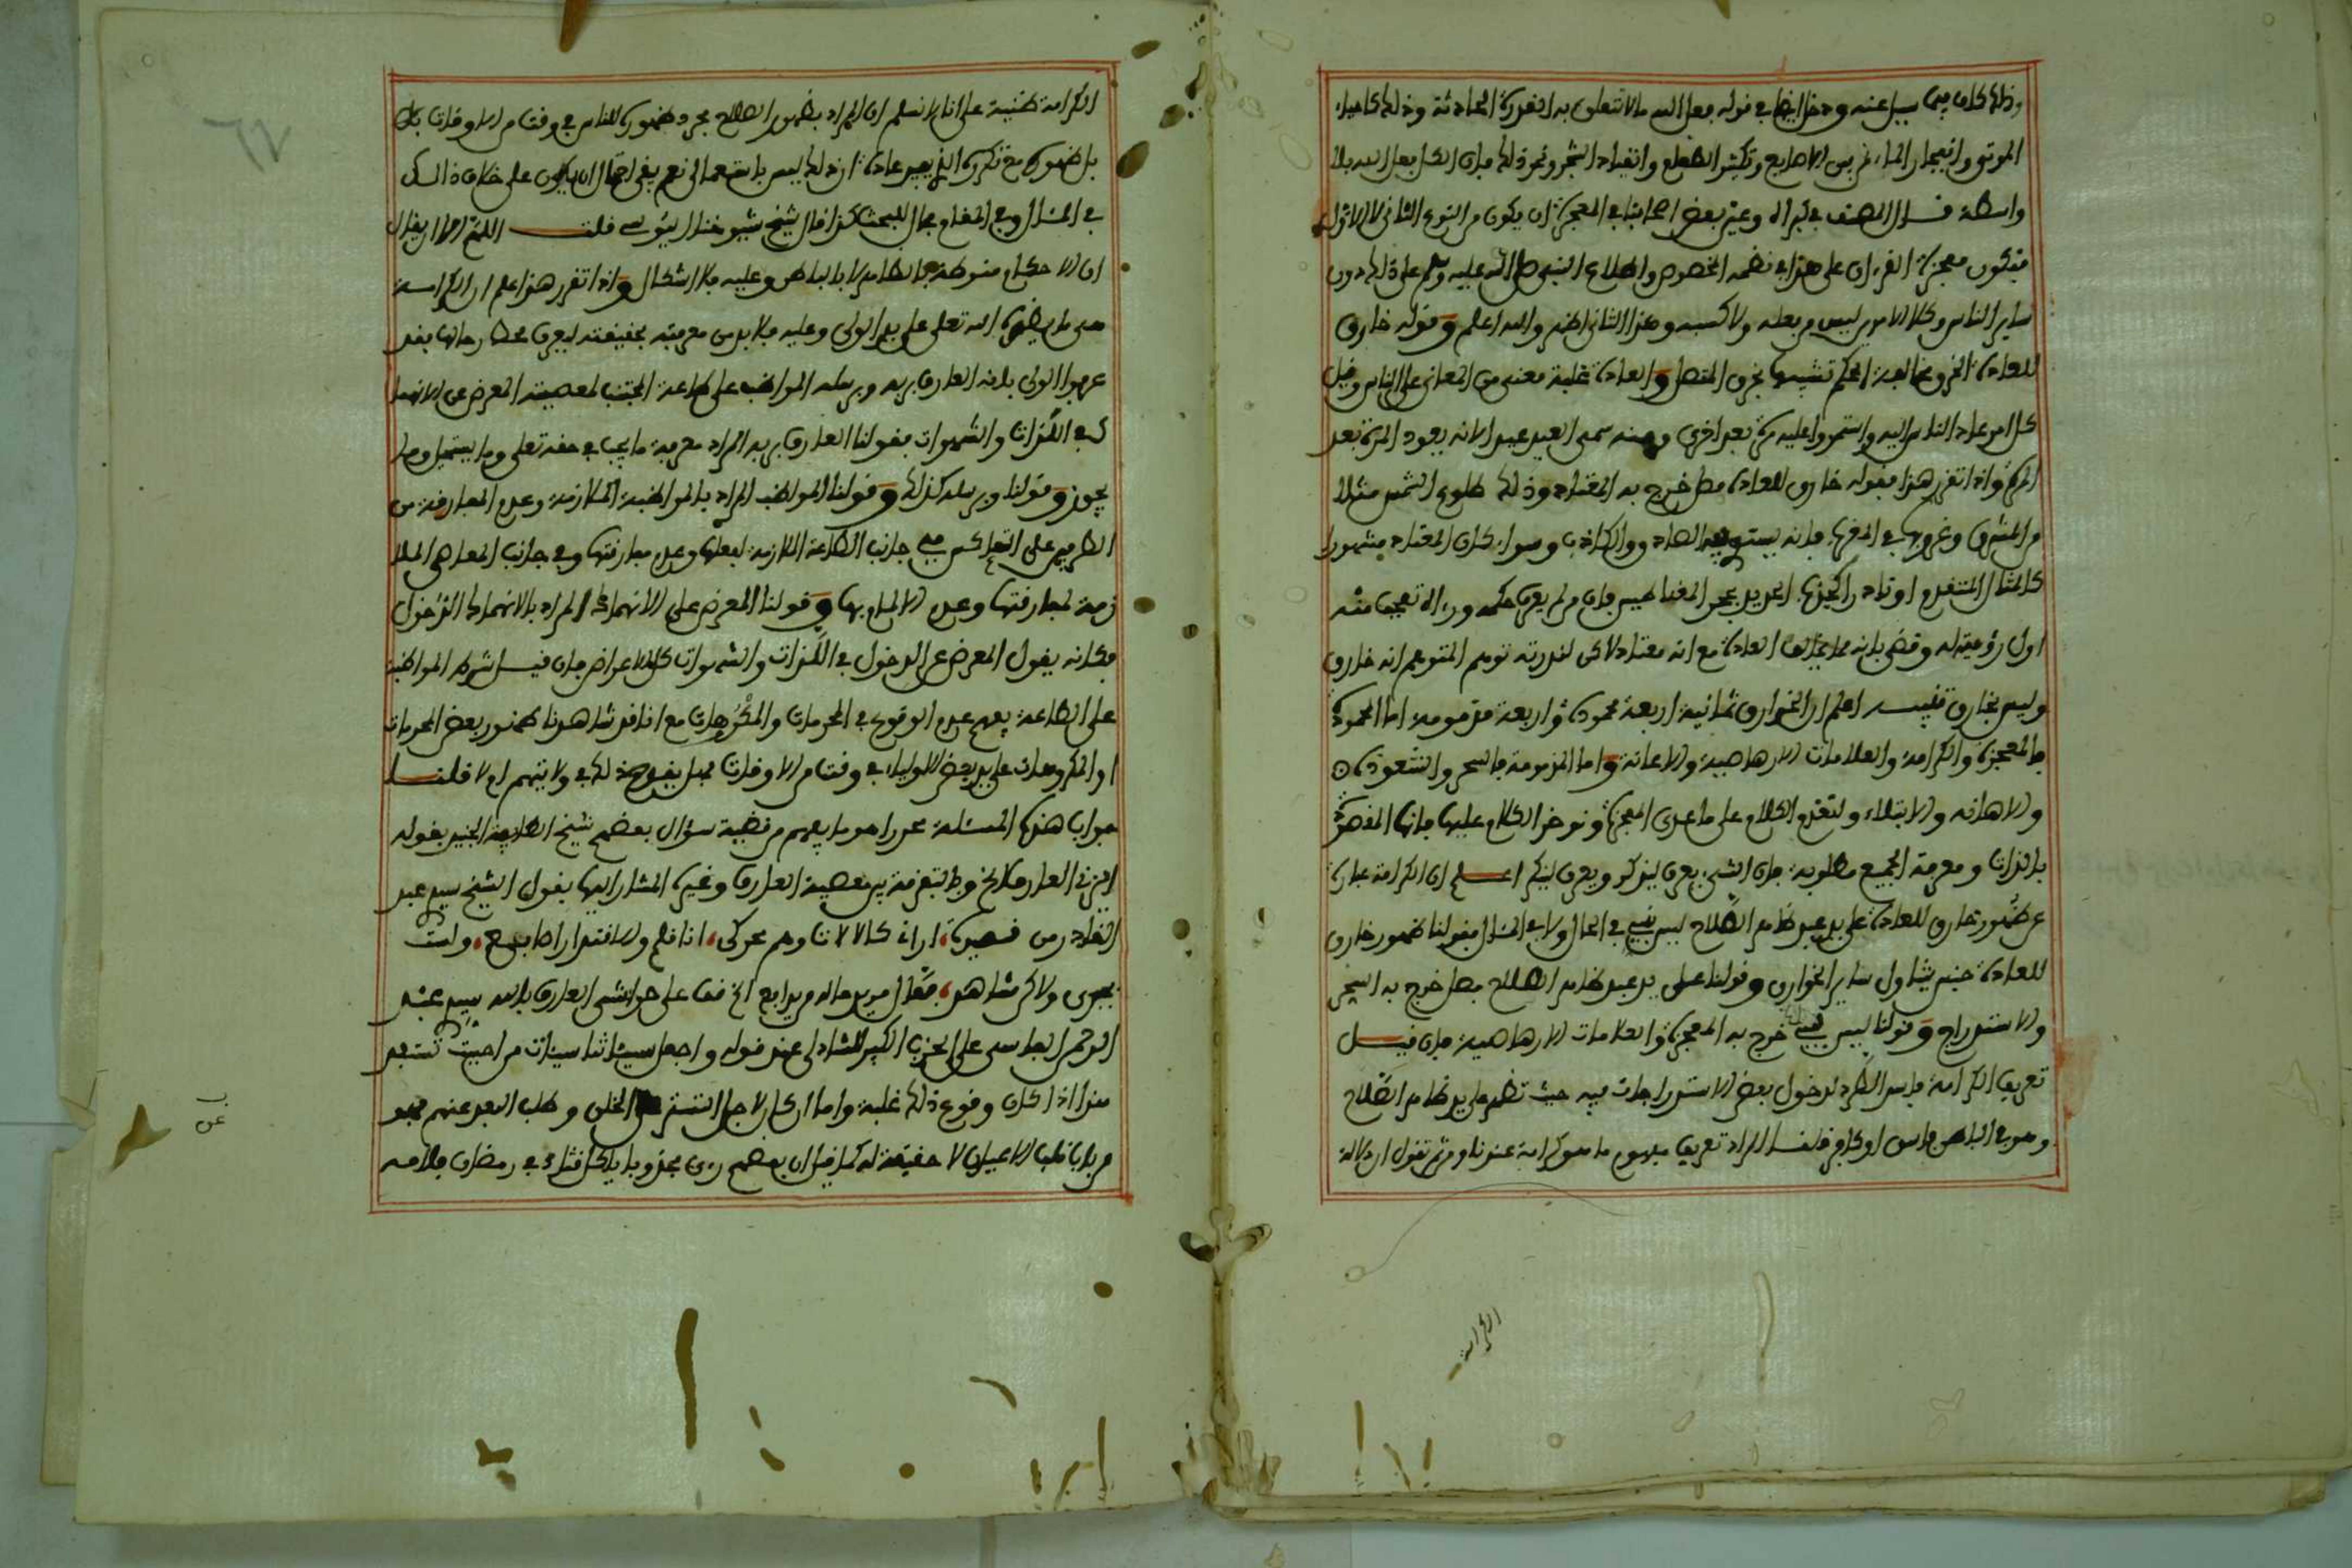 وذلك كان فيما سبيل عنه ودخل ايضا في قوله فعل الله مالا تتعلق به القدرة الحادثة وذلك كاحياء
الموتى وانفجار الماء من بين الاصابع وتكثير الطعام وانقياد الشجر ونحو ذلك فان الكل فعل الله بلا
واسطة قال المصنف في كبراه وعين بعض اصحابنا في المعجزة ان يكون من النوع الثاني لا الاول
فتكون معجزة القرءان على هذا في نظمه المخصوص واطلاع النبي صلى الله عليه وسلم على ذلك دون
ساير الناس وكلا الامرين ليس من فعله ولا كسبه وهذا الثاني اظهر والله اعلم وقوله خارق
للعادة الخرق مخالفة الحكم تشبيها بخرق المتصل والعادة غلبة معنى من المعاني على الناس وقيل
كل امر عاد الناس اليه واستمروا عليه مرة بعد اخرى ومنه سمي العيد عيدا لانه يعود المرة بعد
المرة واذا تقرر هذا فقوله خارق للعادة فصل خرج به المعتاد وذلك كطلوع الشمس مثلا
من المشرق وغروبها في المغرب فانه يستوي فيه الصادق والكاذب وسواء كان المعتاد مشهورا
كالمثال المتقدم او نادرا كجذب الحديد بحجر المغناطيس فان من لم يعرف حكمه ورءاه تعجب منه
اول رؤيته له وقضى بانه مما يخالف العادة مع انه معتاد لاكن لندرته توهم المتوهم انه خارق
وليس بخارق تنبيه اعلم ان الخوارق ثمانية اربعة محمودة واربعة مذمومة اما المحمودة
فالمعجزة والكرامة والعلامات الارهاصية والاعانة واما المذمومة فالسحر والشعوذة
والاهانة والابتلاء ولنقدم الكلام على ما عدى المعجزة ونوخر الكلام عليها فانها المقصودة
بالذات ومعرفة الجميع مطلوبة فان الشيء يعرف ليذكر ويعرف لينكر اعلم ان الكرامة عبارة
عن ظهور خارق للعادة على يد عبد ظاهر الصلاح ليس بنبي في الحال ولا في المئال فقولنا ظهور خارق
للعادة جنس يتناول ساير الخوارق وقولنا على يد عبد ظاهر الصلاح فصل خرج به السحر
والاستدراج وقولنا ليس بنبي خرج به المعجزة والعلامات الارهاصية فان قيل
تعريف الكرامة فاسد الطرد لدخول بعض الاستدراجات فيه حيث تظهر على يد ظاهر الصلاح
وهو في الباطن فاسق او كافر قلنا المراد تعريف مفهوم ما هو كرامة عندنا ومن ثم نقول ان دلالة
الكرامة
الكرامة ظنية على انا لا نسلم ان المراد بظهور الصلاح مجرد ظهوره للناس في وقت من الاوقات بل
بل ظهوره مع تكرره الذي يصير عادة اذ ذلك ليس باستعمال نعم يبقى احتمال ان يكون على خلاف ذلك
في المئال وفي المقام مجال للبحث كذا قال شيخ شيوخنا اليوسي قلت اللهم الا ان يقال
ان الاحكام منوطة بالظاهر لا بالباطن وعليه فلا اشكال واذا تقرر هذا علم ان الكرامة
هي ما يظهره الله تعلى على يد الولي وعليه فلا بد من معرفته بحقيقته ليعرف محل رحالها فقد
عرفوا الولي بانه العارف بربه وبرسله المواظب على الطاعة المجتنب المعصية المعرض عن الانهما
ك في اللذات والشهوات فقولنا العارف بربه المراد معرفة ما يجب في حقه تعلى وما يستحيل وما
يجوز وقولنا وبرسله كذلك وقولنا المواظب المراد بالمواظبة الملازمة وعدم المفارقة من
الطرفين على التعاكس ففي جانب الطاعة الملازمة لفعلها وعدم مفارقتها وفي جانب المعاصي الملا
زمة لمفارقتها وعدم الالمام بها وقولنا المعرض على الانهماك المراد بالانهماك الدخول
فكانه يقول المعرض عن الدخول في اللذات والشهوات كل الاعراض فان قيل شرط المواظبة
على الطاعة يفهم عدم الوقوع في المحرمات والمكروهات مع انا قد شاهدنا ظهور بعض المحرمات
او المكروهات على يد بعض الاولياء في وقت من الاوقات فهل يقدح ذلك في ولايتهم ام لا قلنا
جواب هذه المسئلة محررا هو ما يفهم من قضية سؤال بعضهم شيخ الطايفة الجنيد بقوله
ايزني العارف الخ وما بتغزمة من معصية العارف وغيره المشار اليها بقول الشيخ سيدي عبد
القادر من قصيدة، اراني كالالات وهو محركي، انا قلم والاقتدار اصابع، ولست
بجبري ولاكن مشاهد، فعال مريد ماله من يدافع الخ فعلى حواشي العارف بالله سيدي عبد
الرحمن الفاسي على الحزب الكبير للشاذلي عند قوله واجعل سيئاتنا سيئات من احببت نستعد
هذا اذا كان وقوع ذلك غلبة واما ان كان لاجل التستر من الخلق وطلب البعد عنهم فهو
من باب قلب الاعيان لا حقيقة له كما قيل ان بعضهم رءى مجذوبا ياكل قثاء في رمضان فلامه